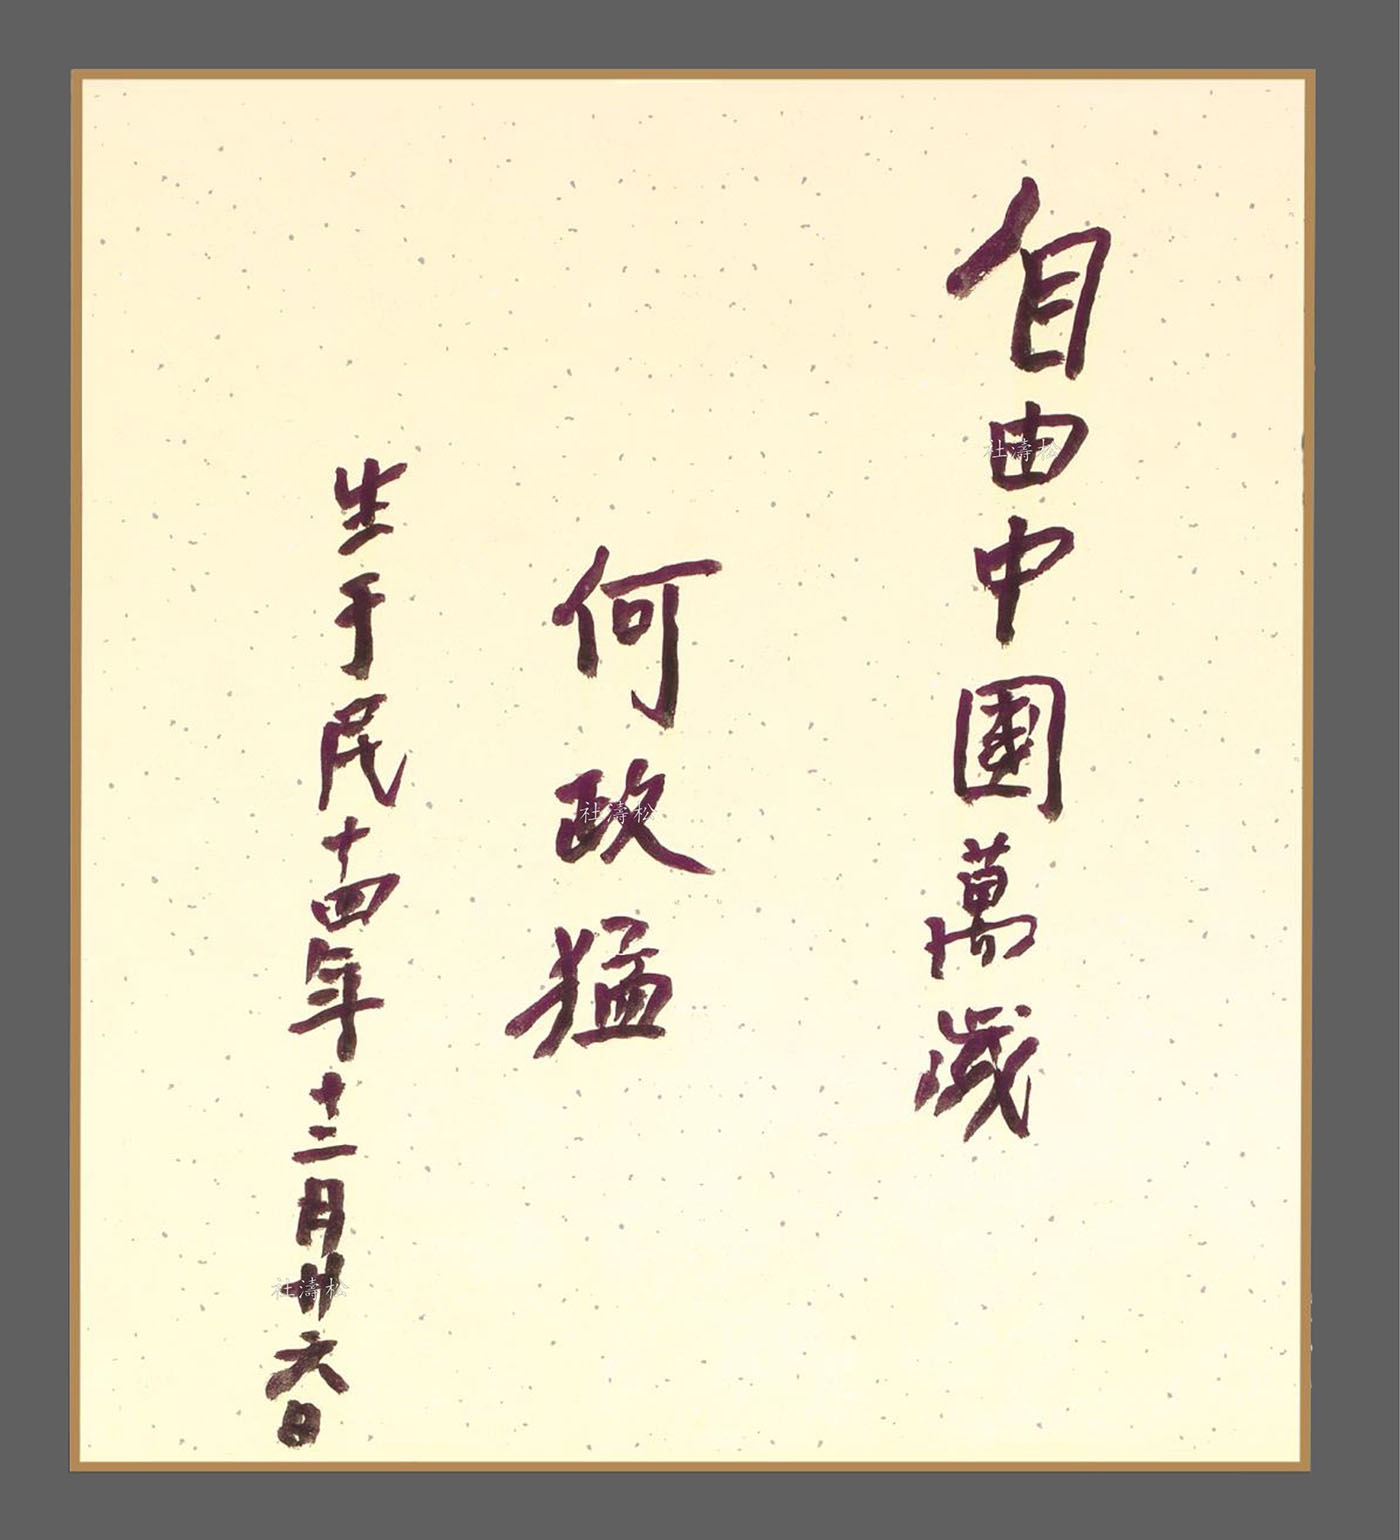 自由中國萬歲
何政猛
生于民十四年十二月廿六日
社濤松
社濤松
社濤松